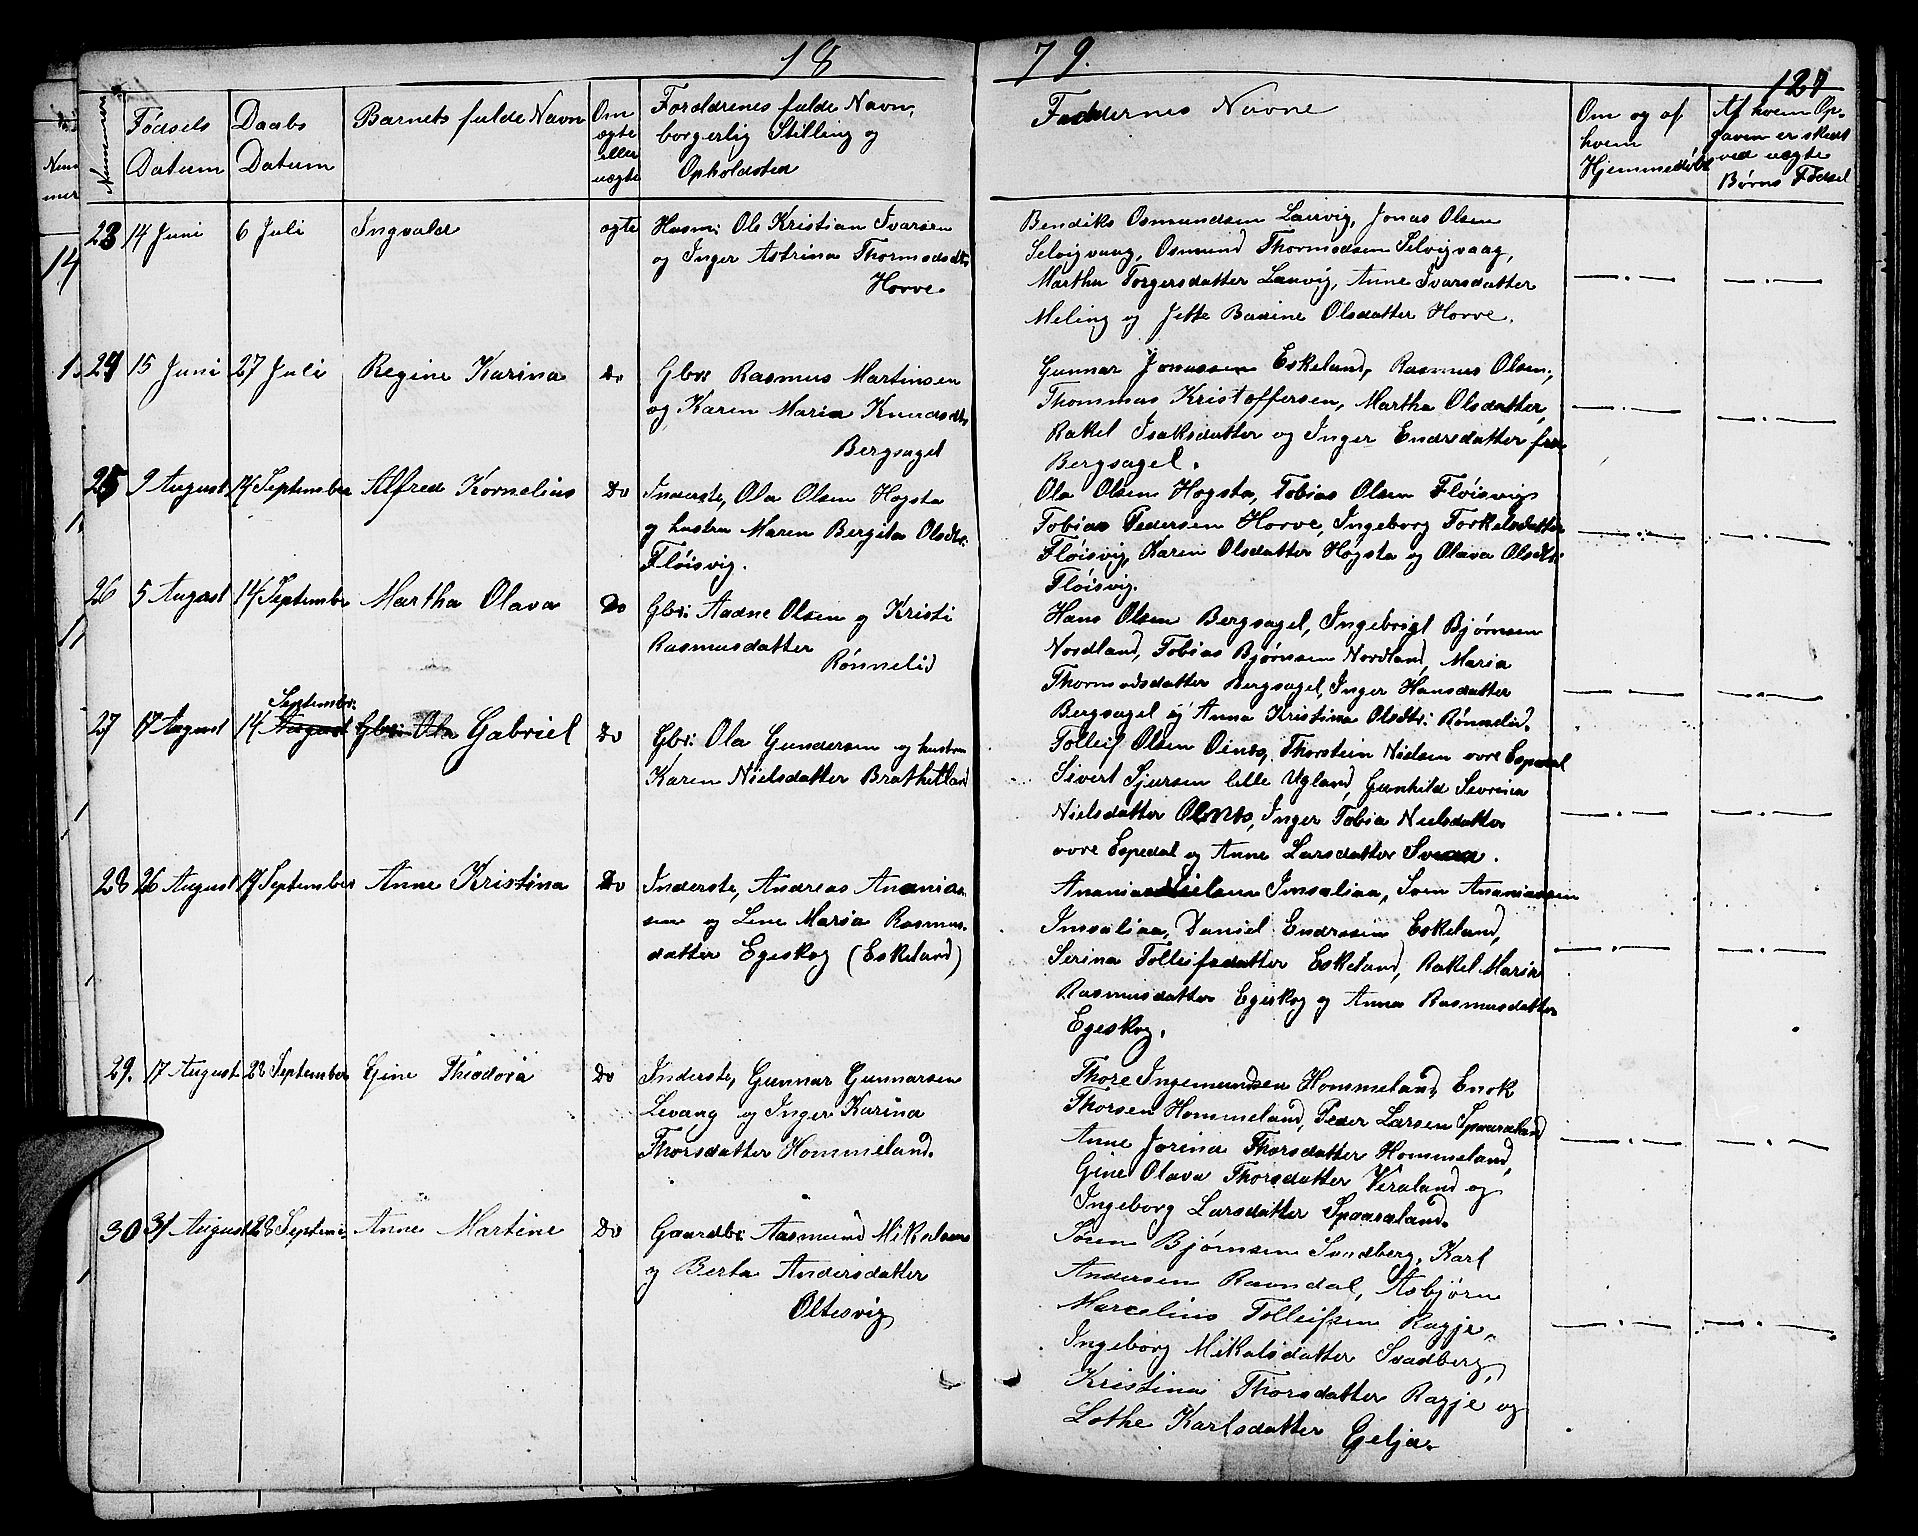 18 79.
127
Nummer
Fødsels Datum
Daabs Datum
Barnets fulde Navn
Om ægte eller uægte
Forældrenes fulde Navn,
borgerlig Stilling og
Opholdsted
Faddernes Navne
Om og af
hvem
Hjemmedøbt
Af hvem Op-
gaven er skedt
ved uægte
Børns Fødsel
23 14 Juni 6 Juli Ingvald ægte
Husm: Ole Kristian Ivarsen
og Inger Astrina Thormodsdtr
Horve
Bendiks Osmundsen Lauvig, Jonas Olsen
Selvigvaag, Osmund Thormodsen Selvigvaag,
Martha Torgersdatter Lauvig, Anne Ivarsdatter
Meling og Jette Basine Olsdatter Horve.
24 15 Juni 27 Juli Regine Karina Do
Gbr: Rasmus Martinsen
og Karen Maria Knudsdtr
Bergsagel
Gunnar Jonassen Eskeland, Rasmus Olsen,
Thommas Kristoffersen, Martha Olsdatter,
Rakel Isaksdatter og Inger Endrsdatter fra
Bergsagel.
25 9 August 14 September Alfred Kornelius Do
Inderste, Ola Olsen Hogsta
og hustru Maren Bergita Olsdtr:
Fløisvig.
Ola Olsen Hogsta, Tobias Olsen Fløisvig
Tobias Pedersen Horve, Ingeborg Torkelsdatter
Fløisvig, Karen Olsdatter Hogsta og Olava Olsdtr:
Fløisvig.
26 5 August 14 September Martha Olava Do
Gbr: Aadne Olsen og Kristi
Rasmusdatter
Rønnelid
Hans Olsen Bergsagel, Ingebrigt Bjørnsen
Nordland, Tobias Bjørnsen Nordland, Maria
Thormodsdatter Bergsagel, Inger Hansdatter
Bergsagel og Anna Kristina Olsdtr: Rønnelid.
September:
27 17 August 14 August Gbr: Ola Gabriel Do
Gbr: Ola Gundersen og hustru
Karen Nielsdatter Brathetland
Tolleif Olsen Oines, Thorstein Nielsen øvre Espedal
Sivert Sjursen lille Ugland, Gunhild Sevrina
Nielsdatter Oines, Inger Tobia Nielsdatter
øvre Espedal og Anne Larsdatter
28 26 August 14 September Anne Kristina Do
Inderste, Andreas Ananias-
sen og Lene Maria Rasmus-
datter Egeskog (Eskeland)
Ananias Imsalian, Sven Ananiassen
Imsalian, Daniel Endresen Eskeland,
Serina Tolleifsdatter Eskeland, Rakel Maria
Rasmusdatter Egeskog og Anna Rasmusdatter
Egeskog.
29. 17 August 28 September Gine Theodora Do
Inderste, Gunnar Gunnarsen
Levang og Inger Karina
Thorsdatter Hommeland.
Thore Ingemundsen Hommeland, Enok
Thorsen Hommeland, Peder Larsen Spaaraland
Anne Jorina Thorsdatter Hommeland,
Gine Olava Thorsdatter Veraland og
Ingeborg Larsdatter Spaaraland.
30 31 August 28 Septem Anne Martine Do
Gaardbr: Aasmund Mikalsen
og Berta Andersdatter
Oltesvig
Søren Bjørnsen Svadberg, Karl
Andersen Ravndal, Asbjørn
Marcelius Tolleifsen Ragje,
Ingeborg Mikalsdatter Svadberg,
Kristina Thorsdatter Ragje og
Lothe Karlsdatter Geljar